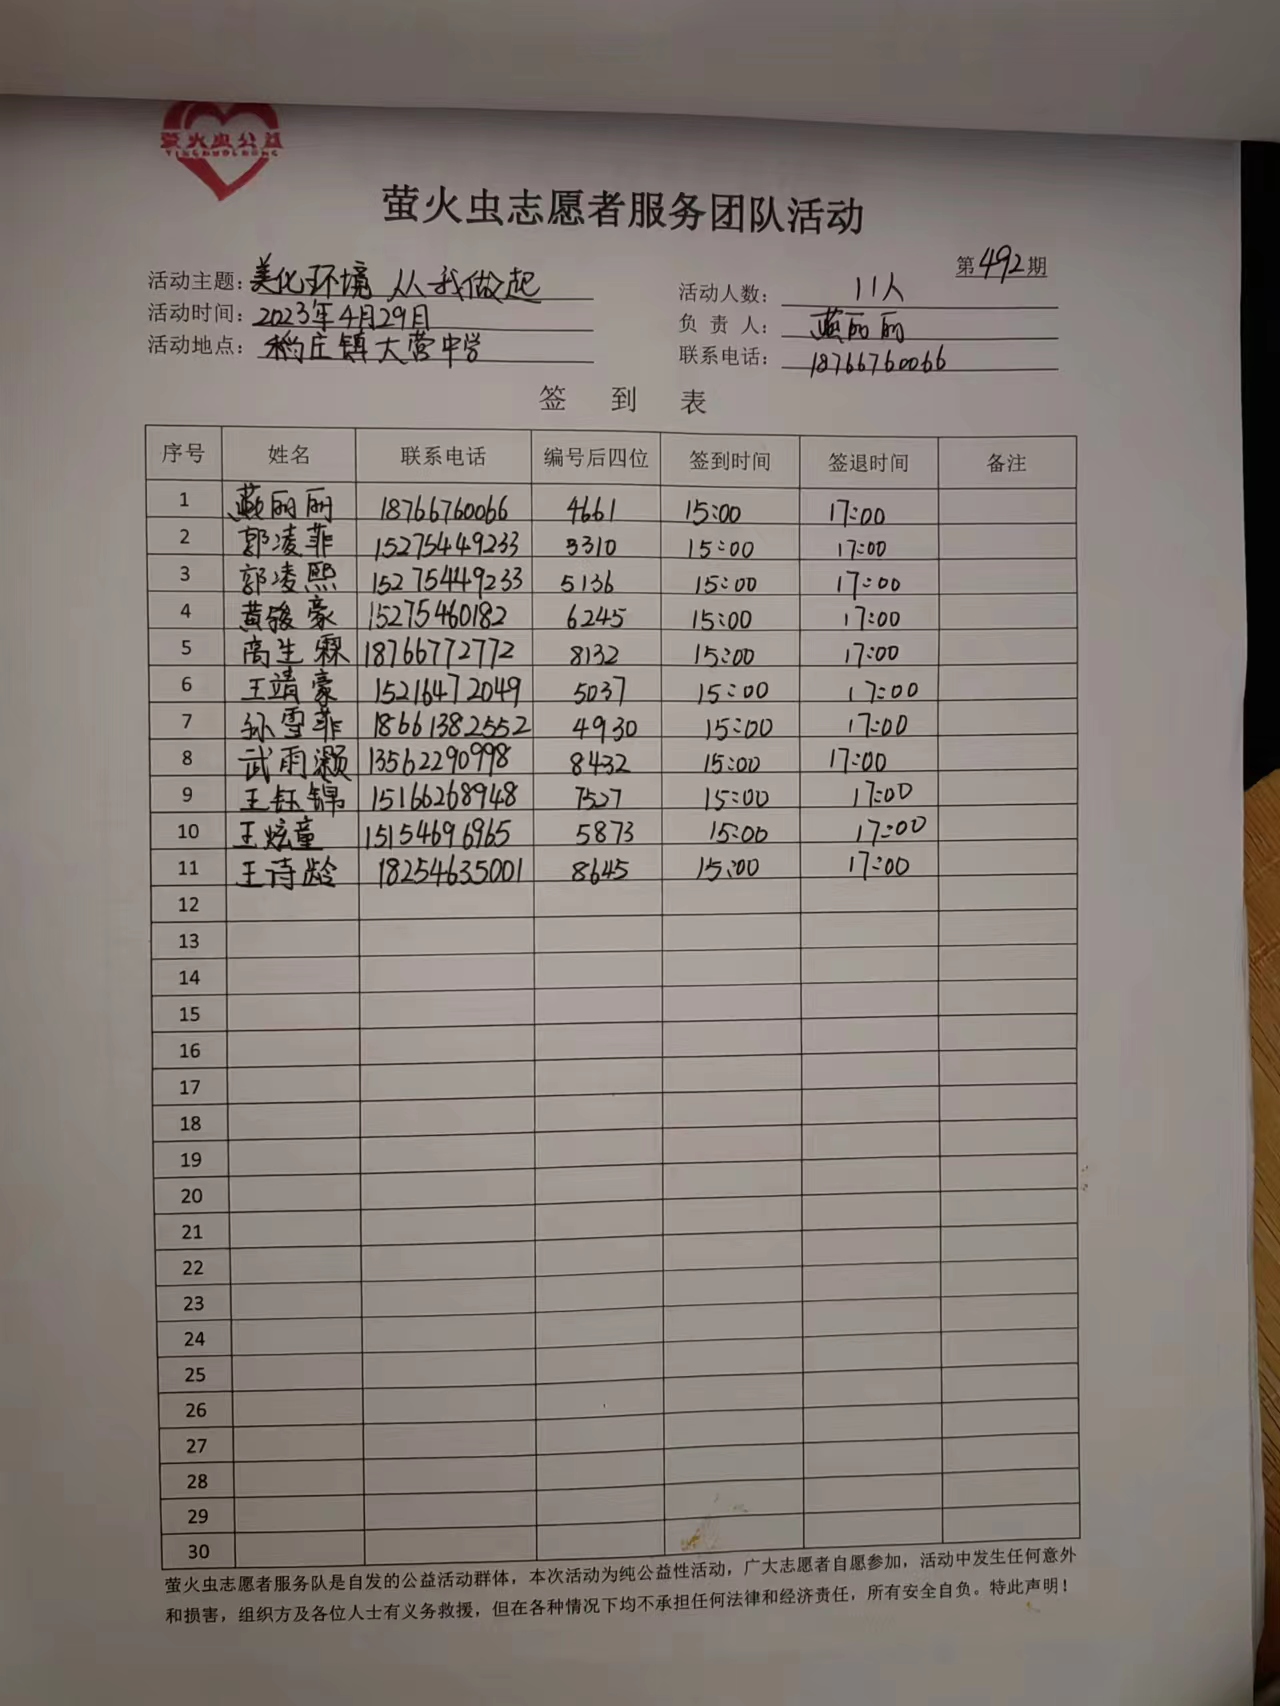 萤火虫公益
萤火虫志愿者服务团队活动
第492期
活动主题：美化环境 从我做起
活动人数：11人
活动时间：2023年4月29日
负责人：燕丽丽
活动地点：稻庄镇大营中学
联系电话：18766760066
签到表
序号 姓名 联系电话 编号后四位 签到时间 签退时间 备注
1 燕丽丽 18766760066 4661 15:00 17:00
2 郭凌菲 15275449233 3310 15:00 17:00
3 郭凌熙 15275449233 5136 15:00 17:00
4 黄骏豪 15275460182 6245 15:00 17:00
5 高生霖 18766772772 8132 15:00 17:00
6 王靖豪 15216472049 5037 15:00 17:00
7 孙雪菲 18661382552 4930 15:00 17:00
8 武雨灏 13562290998 8432 15:00 17:00
9 王钰锦 15166268948 7527 15:00 17:00
10 王炫童 15154696965 5873 15:00 17:00
11 王诗龄 18254635001 8645 15:00 17:00
12
13
14
15
16
17
18
19
20
21
22
23
24
25
26
27
28
29
30
萤火虫志愿者服务队是自发的公益活动群体，本次活动为纯公益性活动，广大志愿者自愿参加，活动中发生任何意外
和损害，组织方及各位人士有义务救援，但在各种情况下均不承担任何法律和经济责任，所有安全自负。特此声明！